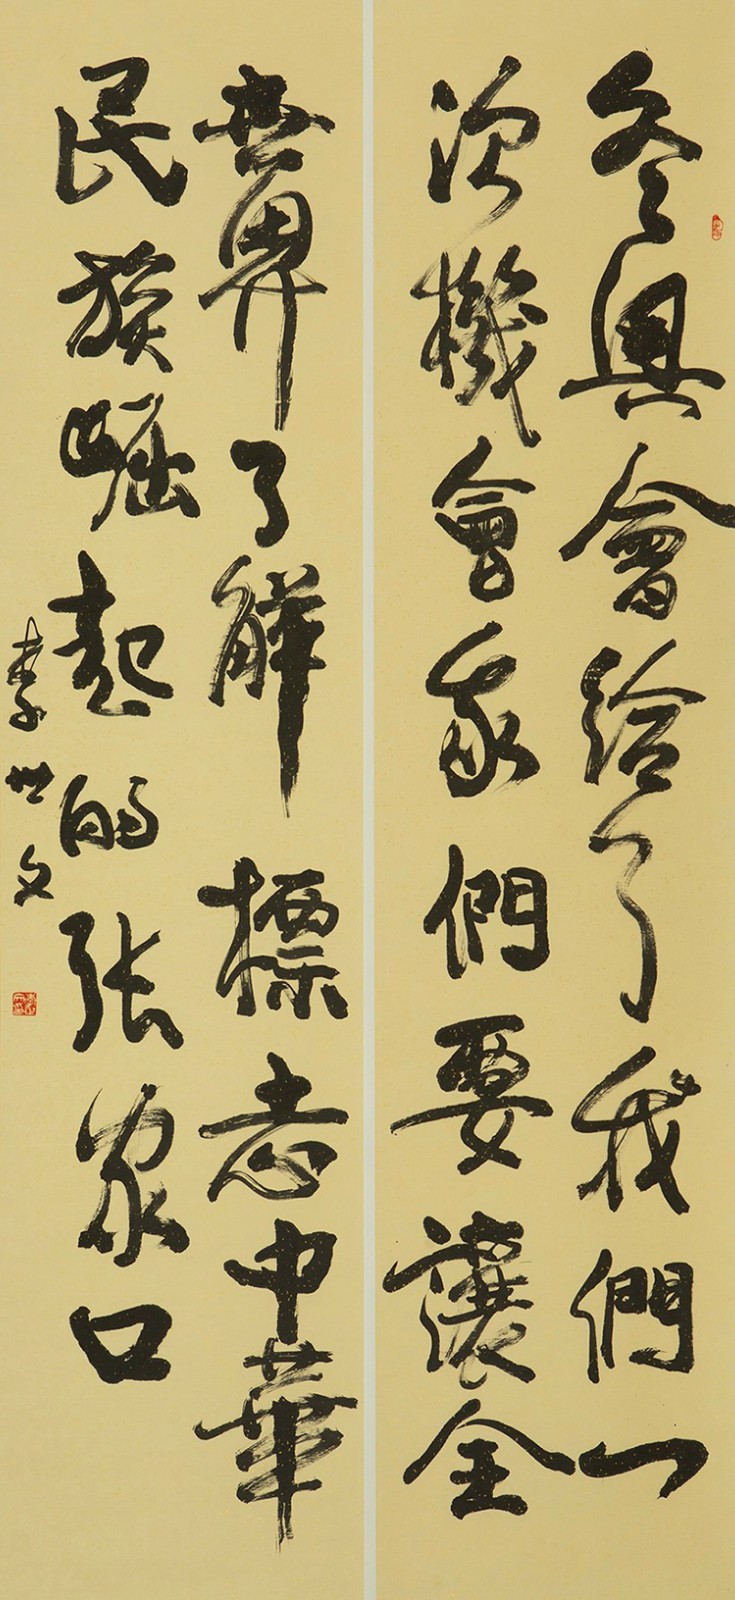 冬奥會給了我們一
次機會我們要讓全
世界了解標志中華
民族崛起的张家口
李世文